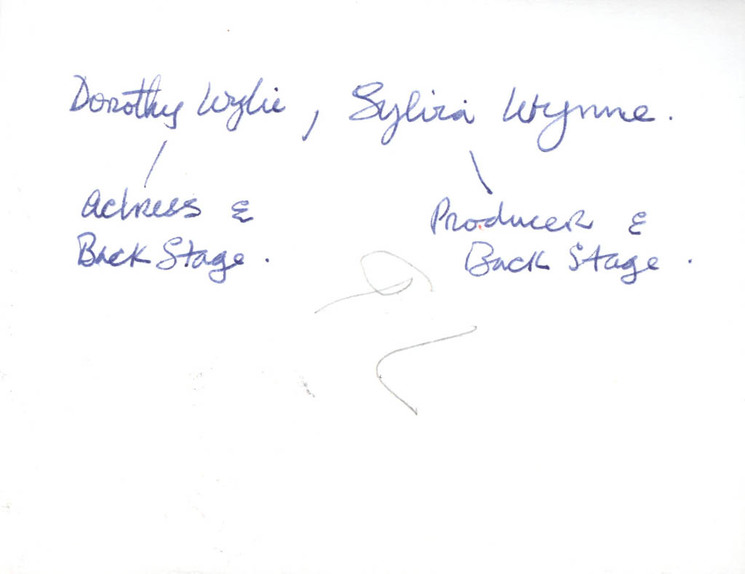 Dorothy Wylie, Sylvia Wynne.
Actress &
Back Stage.
Producer &
Back Stage.